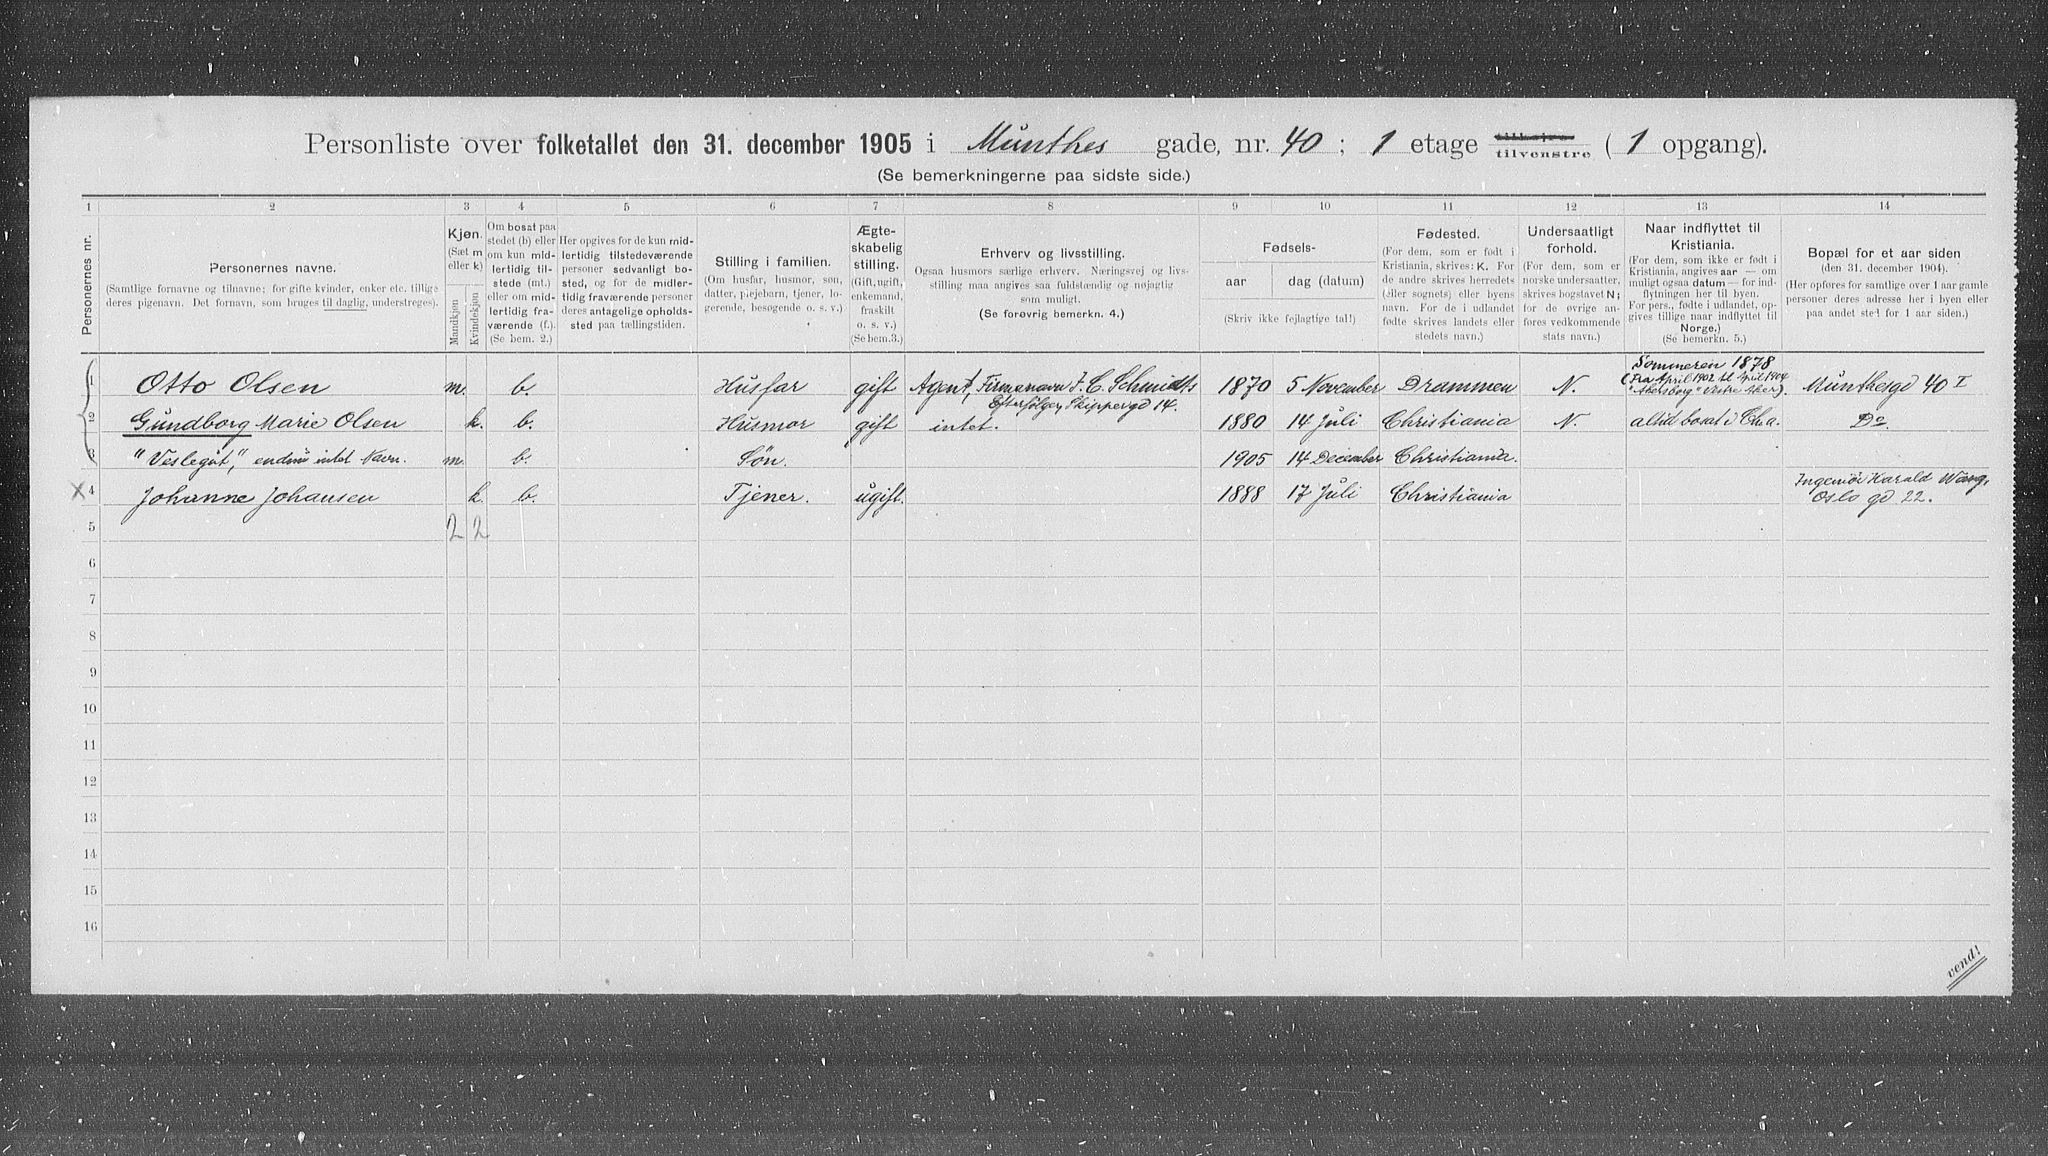 Personliste over folketallet den 31. december 1905 i Munthes gade, nr. 40 ; 1 etage tilhøire tilvenstre ( 1 opgang).
(Se bemerkningerne paa sidste side.)
1 2 3 4 5 6 7 8 9 10 11 12 13 14
Personernes nr.
Personernes navne.
(Samtlige fornavne og tilnavne; for gifte kvinder, enker etc. tillige
deres pigenavn. Det fornavn, som bruges til daglig, understreges).
Kjøn.
(Sæt m
eller k)
Mandkjøn
Kvindekjøn
Om bosat paa
stedet (b) eller
om kun mid-
lertidig til-
stede (mt.)
eller om mid-
lertidig fra-
værende (f.)
(Se bem. 2.)
Her opgives for de kun mid-
lertidig tilstedeværende
personer sedvanligt bo-
sted, og for de midler-
tidig fraværende personer
deres antagelige opholds-
sted paa tællingstiden.
Stilling i familien.
(Om husfar, husmor, søn,
datter, plejebarn, tjener, lo-
gerende, besøgende o. s. v.)
Ægte-
skabelig
stilling.
(Gift, ugift,
enkemand,
fraskilt
o. s. v.)
(Se bem.3.)
Erhverv og livsstilling.
Ogsaa husmors særlige erhverv. Næringsvej og livs-
stilling maa angives saa fuldstændig og nøjagtig
som muligt.
(Se forøvrig bemerkn. 4.)
Fødsels-
aar dag (datum)
(Skriv ikke fejlagtige tal!)
Fødested.
(For dem, som er født i
Kristiania, skrives: K. For
de andre skrives herredets
(eller sognets) eller byens
navn. For de i udlandet
fødte skrives landets eller
stedets navn.)
Undersaatligt
forhold.
(For dem, som er
norske undersaatter,
skrives bogstavet N;
for de øvrige an-
føres vedkommende
stats navn.)
Naar indflyttet til
Kristiania.
(For dem, som ikke er født i
Kristiania, angives aar — om
muligt ogsaa datum — for ind-
flytningen her til byen.
For pers., fødte i udlandet, op-
gives tillige naar indflyttet til
Norge.)
(Se bemerkn. 5.)
Bopæl for et aar siden
(den 31. december 1904).
(Her opføres for samtlige over 1 aar gamle
personer deres adresse her i byen eller
paa andet sted for 1 aar siden.)
1 Otto Olsen m. b. Husfar gift Agent, Firmanavn J. C. Schmidts
Efterfølger, Skippergd 14. 1870 5 November Drammen N. Sommeren 1878
(Fra April 1902 til April 1904
"Akersborg" Vestre Aker). Munthesgd 40 I
2 Gundborg Marie Olsen k. b. Husmor gift intet. 1880 14 Juli Christiania N. altid bosat i Cha. Do.
3 "Veslegut", endnu intet Navn. m. b. Søn. 1905 14 December Christiania.
X 4 Johanne Johansen k. b. Tjener. ugift. 1888 17 Juli Christiania Ingeniør Harald Wang,
Oslo gd 22.
5 2 2
6
7
8
9
10
11
12
13
14
15
16
vend!